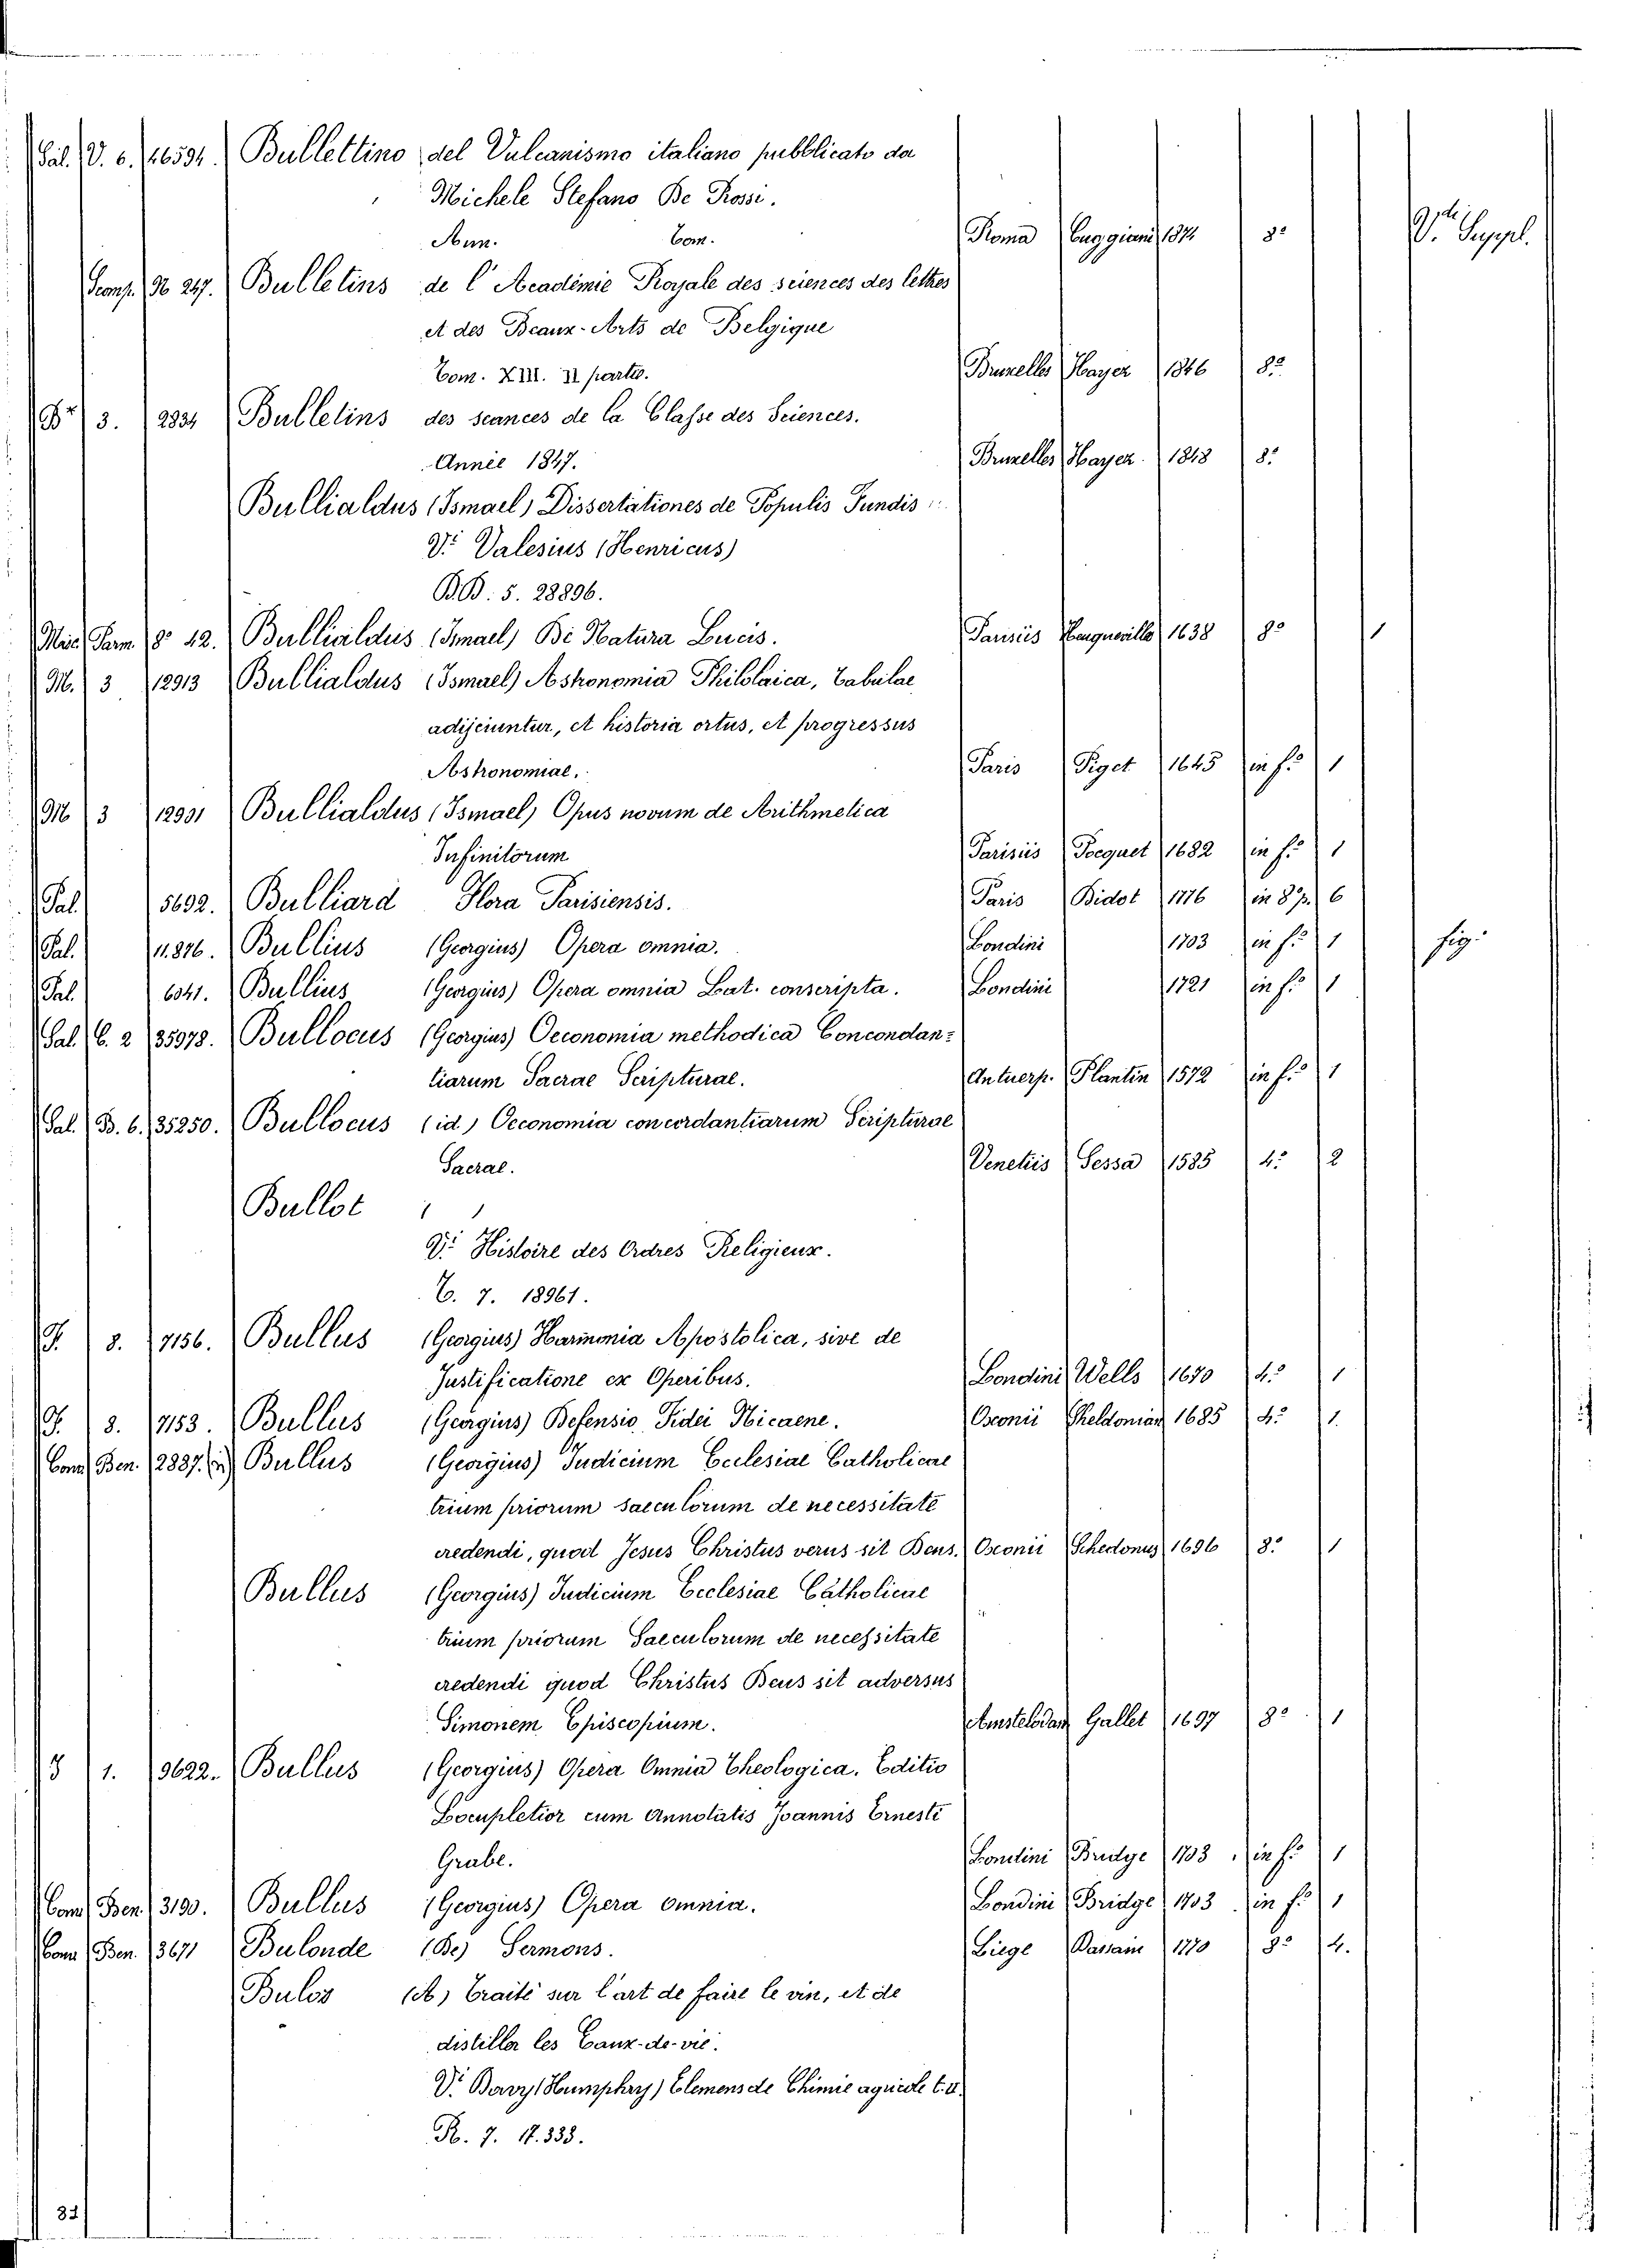 Sal. V. 6. 46594. Bullettino del Vulcanismo italiano pubblicato da
Michele Stefano De Rossi.
Ann. Tom. Roma Cuggiani 1874 8º Vdi Suppl.
Scans. Nº 247. Bulletins de l'Académie Royale des sciences des lettres
et des Beaux-Arts de Belgique
Tom. XIII. II partie. Bruxelles Hayez 1846 8º
3. 2834 Bulletins des scances de la Classe des Sciences.
Année 1847. Bruxelles Hayez. 1848 8º
Bullialdus (Ismael) Dissertationes de Populis Fundis
Vi Valesius (Henricus)
B.B. 5. 28896.
Misc. Parm. 8º 42. Bullialdus (Ismael) De Natura Lucis. Parisiis 1638 8º 1
M. 3 12913 Bullialdus (Ismael) Astronomia Philolaica, Tabulae
adijciuntur, et historia ortus, et progressus
Astronomiae. Paris Piget 1645 in fº 1
M 3 12901 Bullialdus (Ismael) Opus novum de Arithmetica
Infinitorum Parisiis Pocquet 1682 in fº 1
Pal. 5692. Bulliard Flora Parisiensis. Paris Didot 1776 in 8º p. 6
Pal. 11.876. Bullius (Georgius) Opera omnia. Londini 1703 in fº 1 fig.
Pal. 6041. Bullius (Georgius) Opera omnia Lat. conscripta. Londini 1721 in fº 1
Sal. C. 2 35978. Bullocus (Georgius) Oeconomia methodica Concondan=
tiarum Sacrae Scripturae. Antuerp. Plantin 1572 in fº 1
Sal. B. 6. 35250. Bullocus (id.) Oeconomia concordantiarum Scripturae
Sacrae. Venetiis Sessa 1585 4º 2
Bullot
Vi Histoire des Ordres Religieux.
C. 7. 18961.
F. 8. 7156. Bullus (Georgius) Harmonia Apostolica, sive de
Justificatione ex Operibus. Londini Wells 1670 4º 1
F. 8. 7153. Bullus (Georgius) Defensio Fidei Nicaene. Oxonii Sheldonian 1685 4º 1.
Cons. Ben. 2887. (in) Bullus (Georgius) Judicium Ecclesiae Catholicae
trium priorum saeculorum de necessitate
credendi, quod Jesus Christus verus sit Deus. Oxonii Schedonus 1696 8º 1
Bullus (Georgius) Judicium Ecclesiae Catholicae
trium priorum Saeculorum de necessitate
credendi quod Christus Deus sit adversus
Simonem Episcopium. Amstelodam Gallet 1697 8º 1
1. 3622. Bullus (Georgius) Opera Omnia Theologica. Editio
Locupletior cum Annotatis Joannis Ernesti
Grabe. Londini Bridge 1703 in fº 1
Cons. Ben. 3190. Bullus (Georgius) Opera omnia. Londini Bridge 1703 in fº 1
Cons. Ben. 3671 Bulonde (De) Sermons. Liege Bassain 1770 8º 4.
Bulos (A) Traité sur l'art de faire le vin, et de
distiller les Eaux-de-vie.
Vi Davy (Humphry) Elemens de Chimie agricole t. II.
R. 7. 17.333.